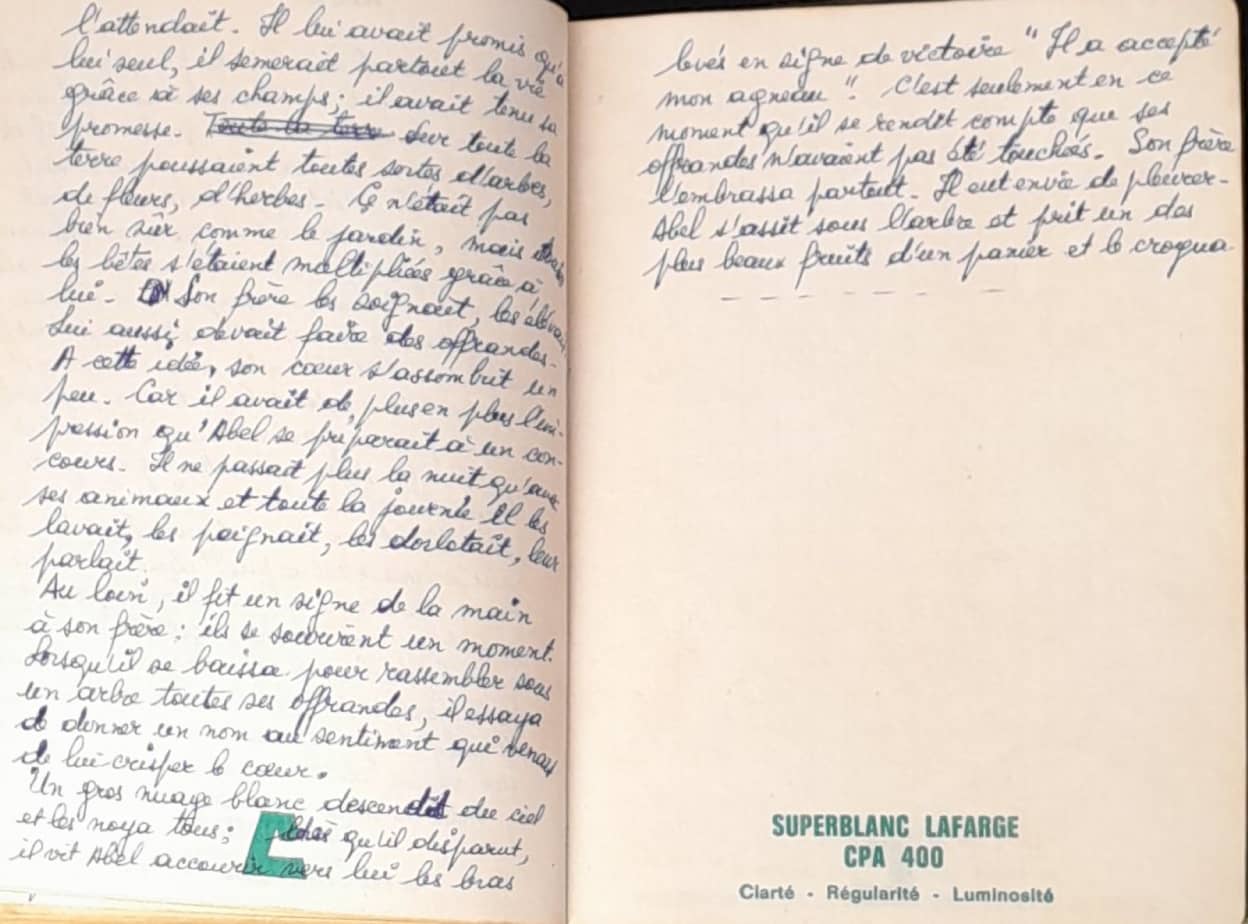 l'attendait. Il lui avait promis qu'à
lui seul, il semerait partout la vie
grâce à ses champs ; il avait tenu sa
promesse. Toute la terre Sur toute la
terre poussaient toutes sortes d'arbres,
de fleurs, d'herbes. Ce n'était pas
bien sûr comme le jardin, mais
les bêtes s'étaient multipliées grâce à
lui. Son frère les soignait, les élevait
Lui aussi, devait faire des offrandes.
A cette idée, son cœur s'assombrit un
peu. Car il avait de plus en plus l'im-
pression qu'Abel se préparait à un con-
cours. Il ne passait plus la nuit qu'avec
ses animaux et toute la journée il les
lavait, les peignait, les dorlotait, leur
parlait.
Au loin, il fit un signe de la main
à son frère : ils se sourirent un moment.
Lorsqu'il se baissa pour rassembler sous
un arbre toutes ses offrandes, il essaya
de donner un nom au sentiment qui venait
de lui crisper le cœur.
Un gros nuage blanc descendit du ciel
et les noya tous ; qu'il disparut,
il vit Abel accourir vers lui les bras
levés en signe de victoire "Il a accepté
mon agneau". C'est seulement en ce
moment qu'il se rendit compte que ses
offrandes n'avaient pas été touchées. Son frère
l'embrassa partout. Il eut envie de pleurer.
Abel s'assit sous l'arbre et prit un des
plus beaux fruits d'un panier et le croqua.
SUPERBLANC LAFARGE
CPA 400
Clarté - Régularité - Luminosité